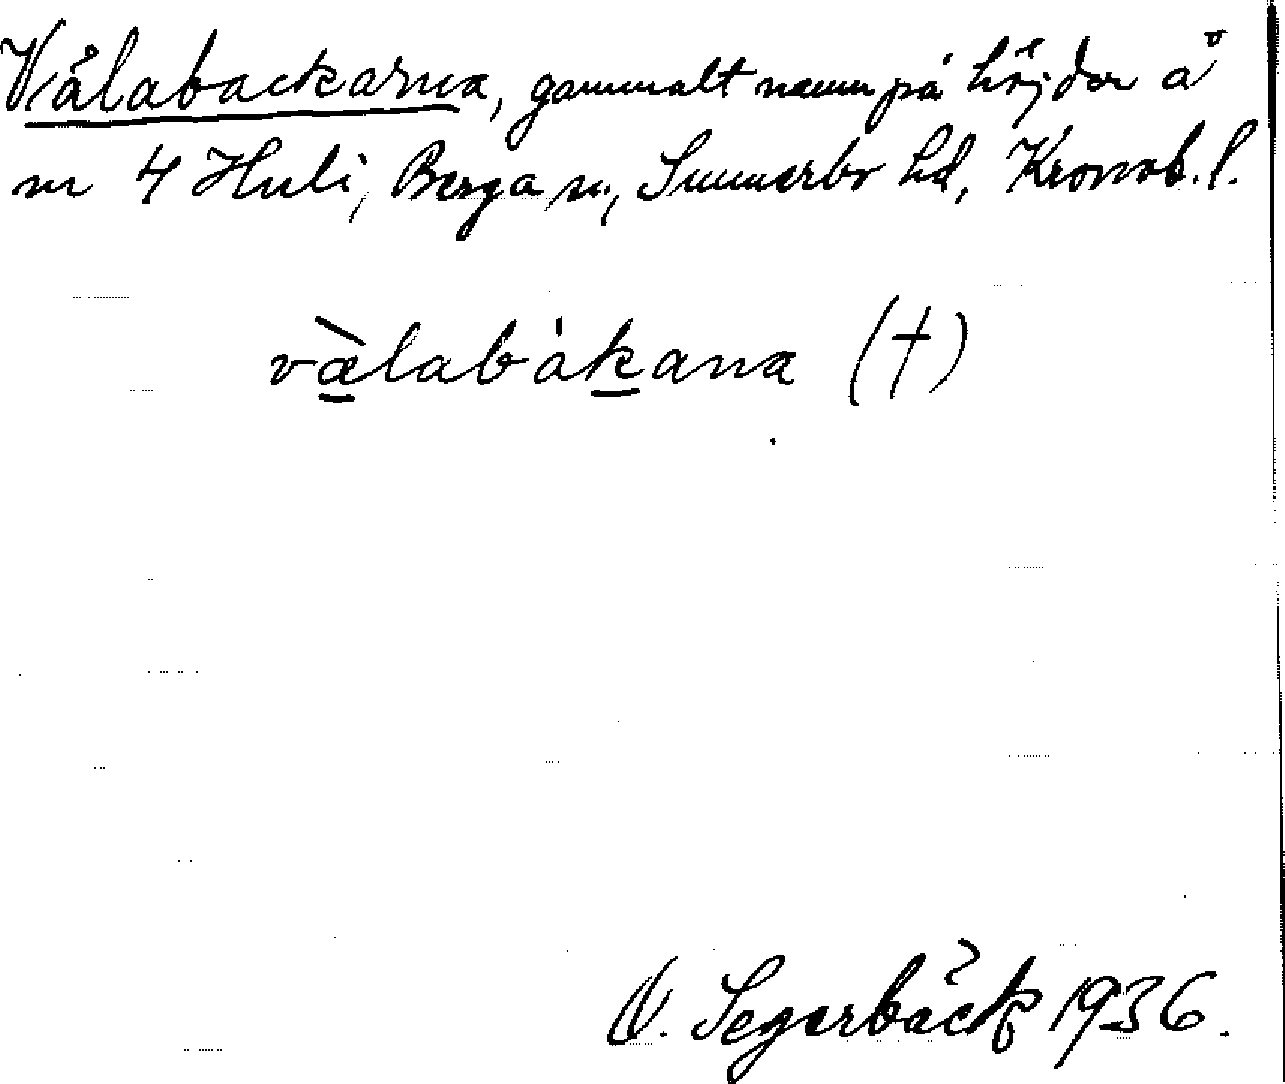 Vålabackarna, gammalt namn på höjder å
nr 4 Huli, Berga sn, Sunnerbo hd, Kronob. l.
vàlabákana (†)
V. Segerbäck 1936.